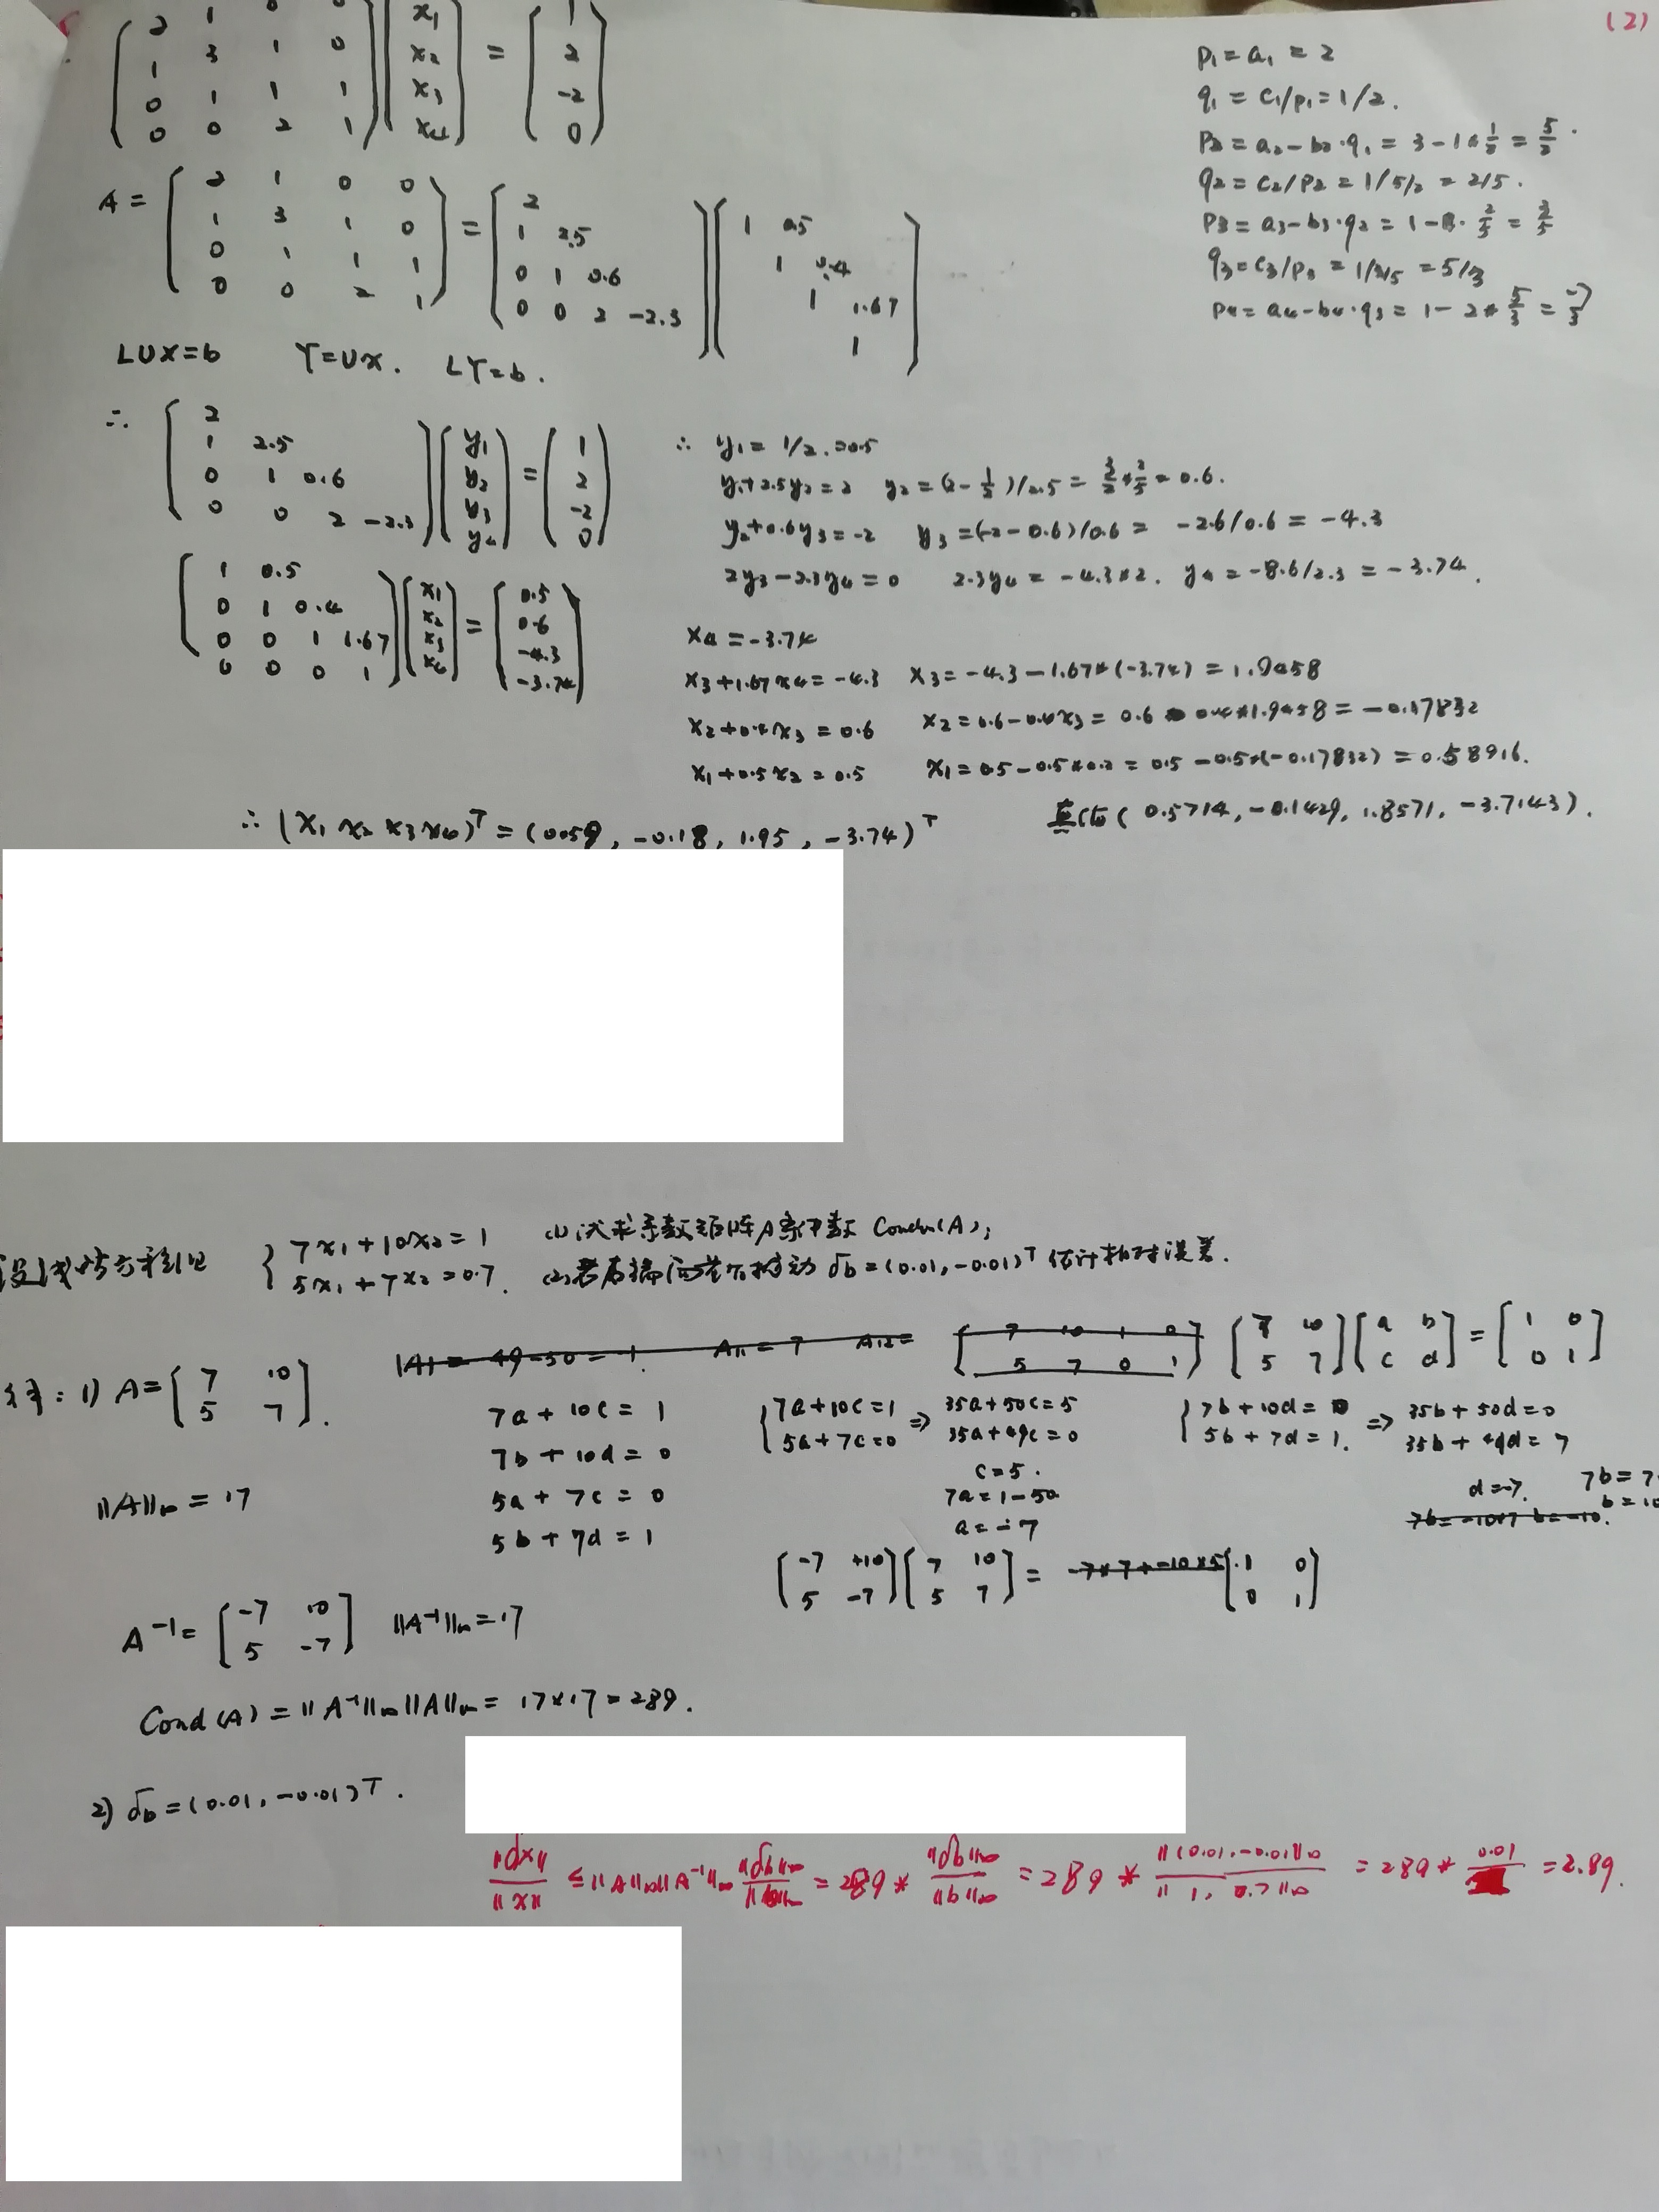 (2)
2 1 0 0 x₁ 1
1 3 1 0 x₂ = 2
0 1 1 1 x₃ -2
0 0 2 1 x₄ 0
P₁ = a₁ = 2
q₁ = c₁/p₁ = 1/2.
P₂ = a₂ - b₂·q₁ = 3 - 1*1/2 = 5/2.
q₂ = c₂/P₂ = 1/5/2 = 2/5.
P₃ = a₃ - b₃·q₂ = 1 - 1·2/5 = 3/5
q₃ = c₃/p₃ = 1/3/5 = 5/3
P₄ = a₄ - b₄·q₃ = 1 - 2*5/3 = -7/3
A = [2 1 0 0; 1 3 1 0; 0 1 1 1; 0 0 2 1] = [2; 1 2.5; 0 1 0.6; 0 0 2 -2.3] [1 0.5; 1 0.4; 1 1.67; 1]
LUX=b Y=UX. LY=b.
∴ [2; 1 2.5; 0 1 0.6; 0 0 2 -2.3] [y₁; y₂; y₃; y₄] = [1; 2; -2; 0]
∴ y₁ = 1/2 = 0.5
y₁+2.5y₂=2 y₂=(2-1/2)/2.5 = 3/2*2/5 = 0.6.
y₂+0.6y₃=-2 y₃=(-2-0.6)/0.6 = -2.6/0.6 = -4.3
2y₃-2.3y₄=0 2.3y₄ = -4.3*2. y₄ = -8.6/2.3 = -3.74.
[1 0.5; 0 1 0.4; 0 0 1 1.67; 0 0 0 1] [x₁; x₂; x₃; x₄] = [0.5; 0.6; -4.3; -3.74]
x₄ = -3.74
x₃+1.67x₄=-4.3 x₃=-4.3-1.67*(-3.74)=1.9458
x₂+0.4x₃=0.6 x₂=0.6-0.4x₃=0.6-0.4*1.9458=-0.17832
x₁+0.5x₂=0.5 x₁=0.5-0.5*0.2=0.5-0.5*(-0.17832)=0.58916.
∴ (x₁ x₂ x₃ x₄)ᵀ = (0.59, -0.18, 1.95, -3.74)ᵀ
真值(0.5714, -0.1429, 1.8571, -3.7143).
设线性方程组 { 7x₁+10x₂=1 (1)试求系数矩阵A条件数 Cond∞(A);
5x₁+7x₂=0.7. (2)若右端向量有扰动 δb=(0.01,-0.01)ᵀ 估计相对误差.
|A| = 49-50 = -1. A₁₁ = 7 A₁₂= [7 10 1 0; 5 7 0 1] [7 10; 5 7] [a b; c d] = [1 0; 0 1]
解: 1) A = [7 10; 5 7].
7a+10c=1
7b+10d=0
5a+7c=0
5b+7d=1
{ 7a+10c=1 ⇒ 35a+50c=5
5a+7c=0 35a+49c=0
c=5.
7a=1-50
a=-7
{ 7b+10d=0 ⇒ 35b+50d=0
5b+7d=1. 35b+49d=7
d=-7. 7b=7
b=10
7b=-10*7 b=-10.
‖A‖∞ = 17
[-7 +10; 5 -7] [7 10; 5 7] = -7*7+-10×5 [1 0; 0 1]
A⁻¹ = [-7 10; 5 -7] ‖A⁻¹‖∞=17
Cond(A) = ‖A⁻¹‖∞‖A‖∞ = 17*17=289.
2) δb=(0.01,-0.01)ᵀ.
‖δx‖/‖x‖ ≤ ‖A‖∞‖A⁻¹‖∞ ‖δb‖∞/‖b‖∞ = 289 * ‖δb‖∞/‖b‖∞ = 289 * ‖(0.01,-0.01)‖∞/‖1, 0.7‖∞ = 289 * 0.01/ = 2.89.